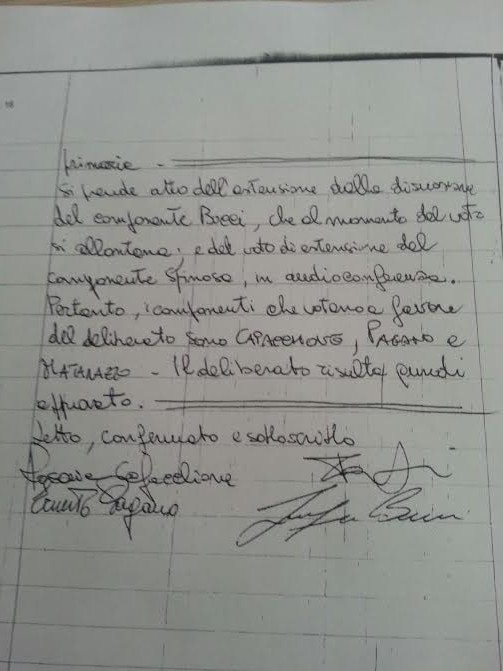 primarie -
Si prende atto dell'astensione dalla discussione
del componente Bucci, che al momento del voto
si allontana; e del voto di astensione del
componente Spinosa, in audioconferenza.
Pertanto, i componenti che votano a favore
del deliberato sono CAPACCHIONE, PAGANO e
MATARAZZO - Il deliberato risulta quindi
approvato.
Letto, confermato e sottoscritto
Capacchione
Pagano